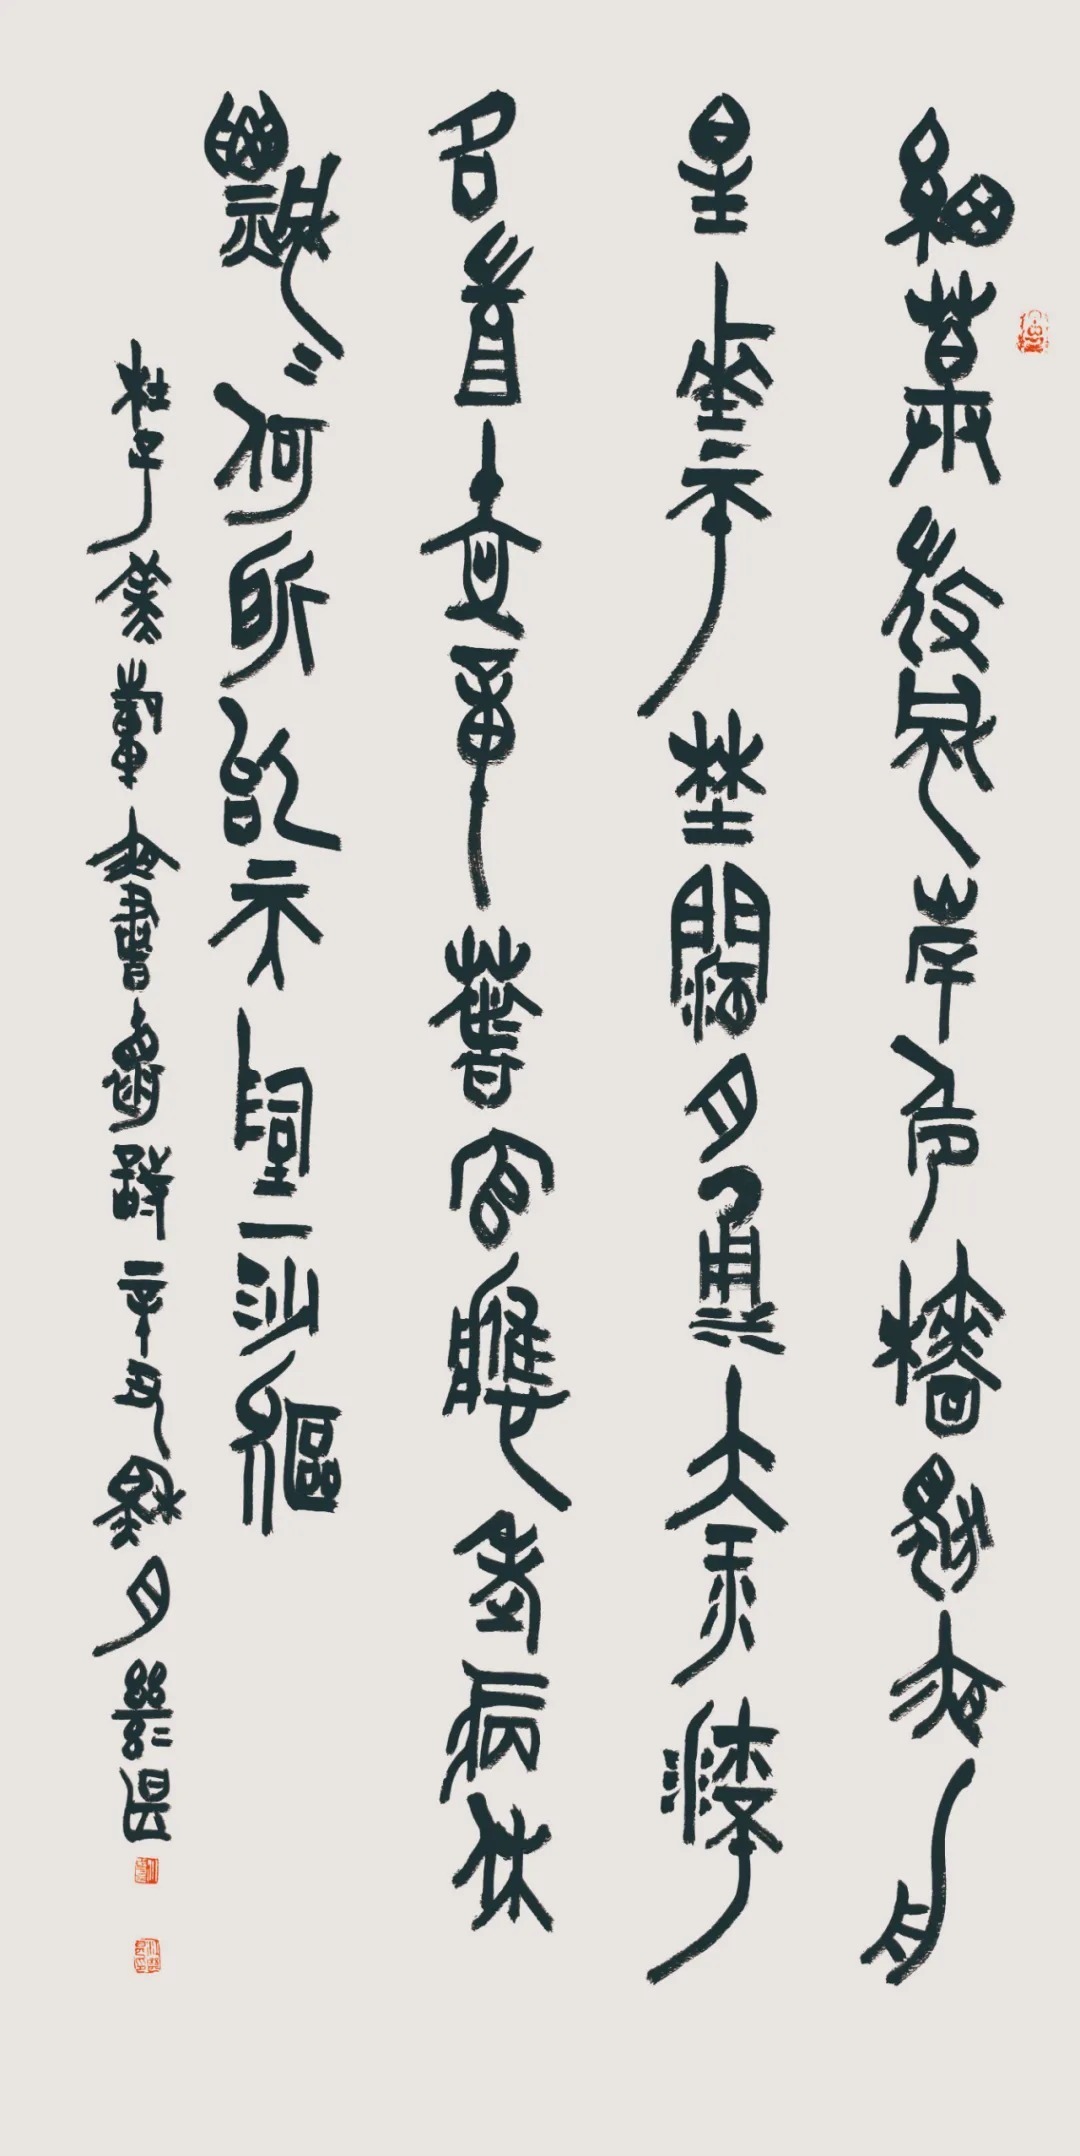 細草微風岸危檣獨夜舟
星垂平野闊月湧大江流
名豈文章著官應老病休
飄〻何所似天地一沙鷗
杜子美旅夜書懷詩辛丑秋月